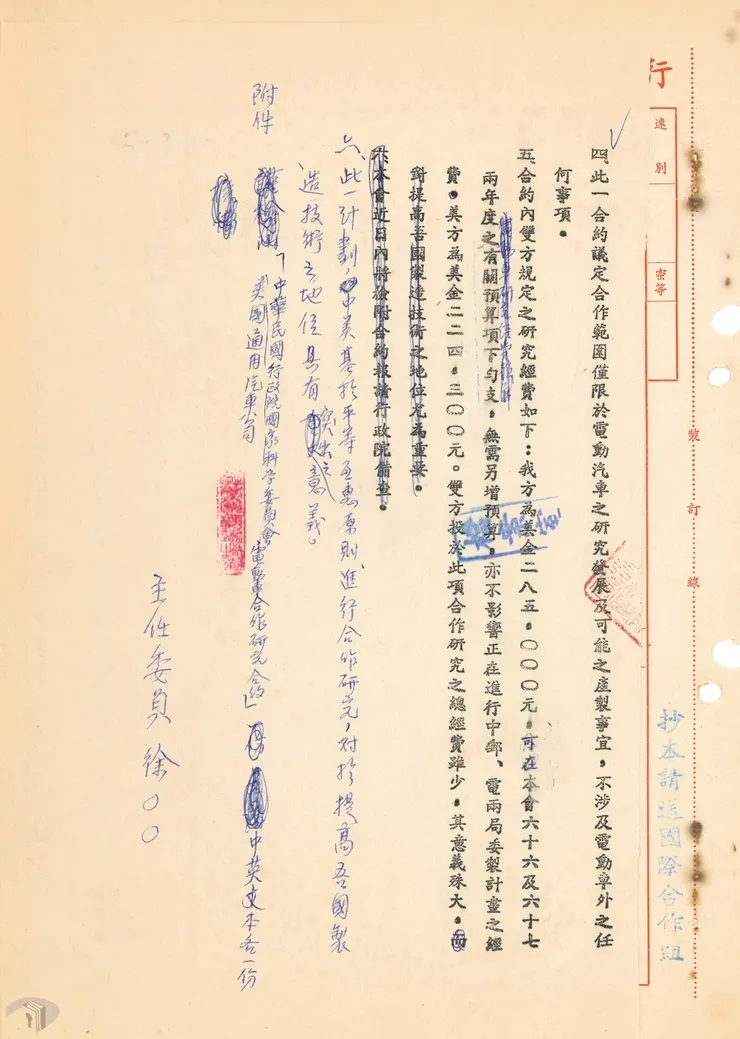 行
速別
密等
裝訂線
抄本請送國際合作組
四、此一合約議定合作範圍僅限於電動汽車之研究發展及可能之產製事宜,不涉及電動車外之任
何事項。
五、合約內雙方規定之研究經費如下:我方為美金二八五,〇〇〇元,可在本會六十六及六十七
兩年度之有關預算項下勻支,無需另增預算,亦不影響正在進行中郵、電兩局委製計畫之經
費。美方為美金二二四,三〇〇元。雙方投於此項合作研究之總經費雖少,其意義殊大,而
對提高吾國製造技術之地位尤為重要。
六、本會近日內將檢附合約報請行政院備查。
六、此一計劃,中美基於平等互惠原則,進行合作研究,對於提高吾國製
造技術之地位具有突出之意義。
附件
「中華民國行政院國家科學委員會
美國通用汽車公司
電動車合作研究合約」
中英文本各一份
主任委員 徐〇〇